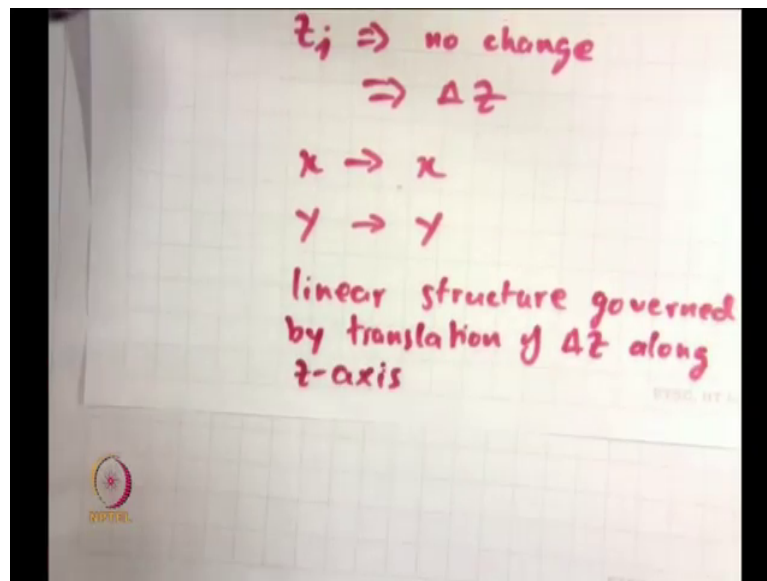 Zj ⇒ no change
⇒ ΔZ
x → x
y → y
linear structure governed
by translation of ΔZ along
Z-axis
NPTEL